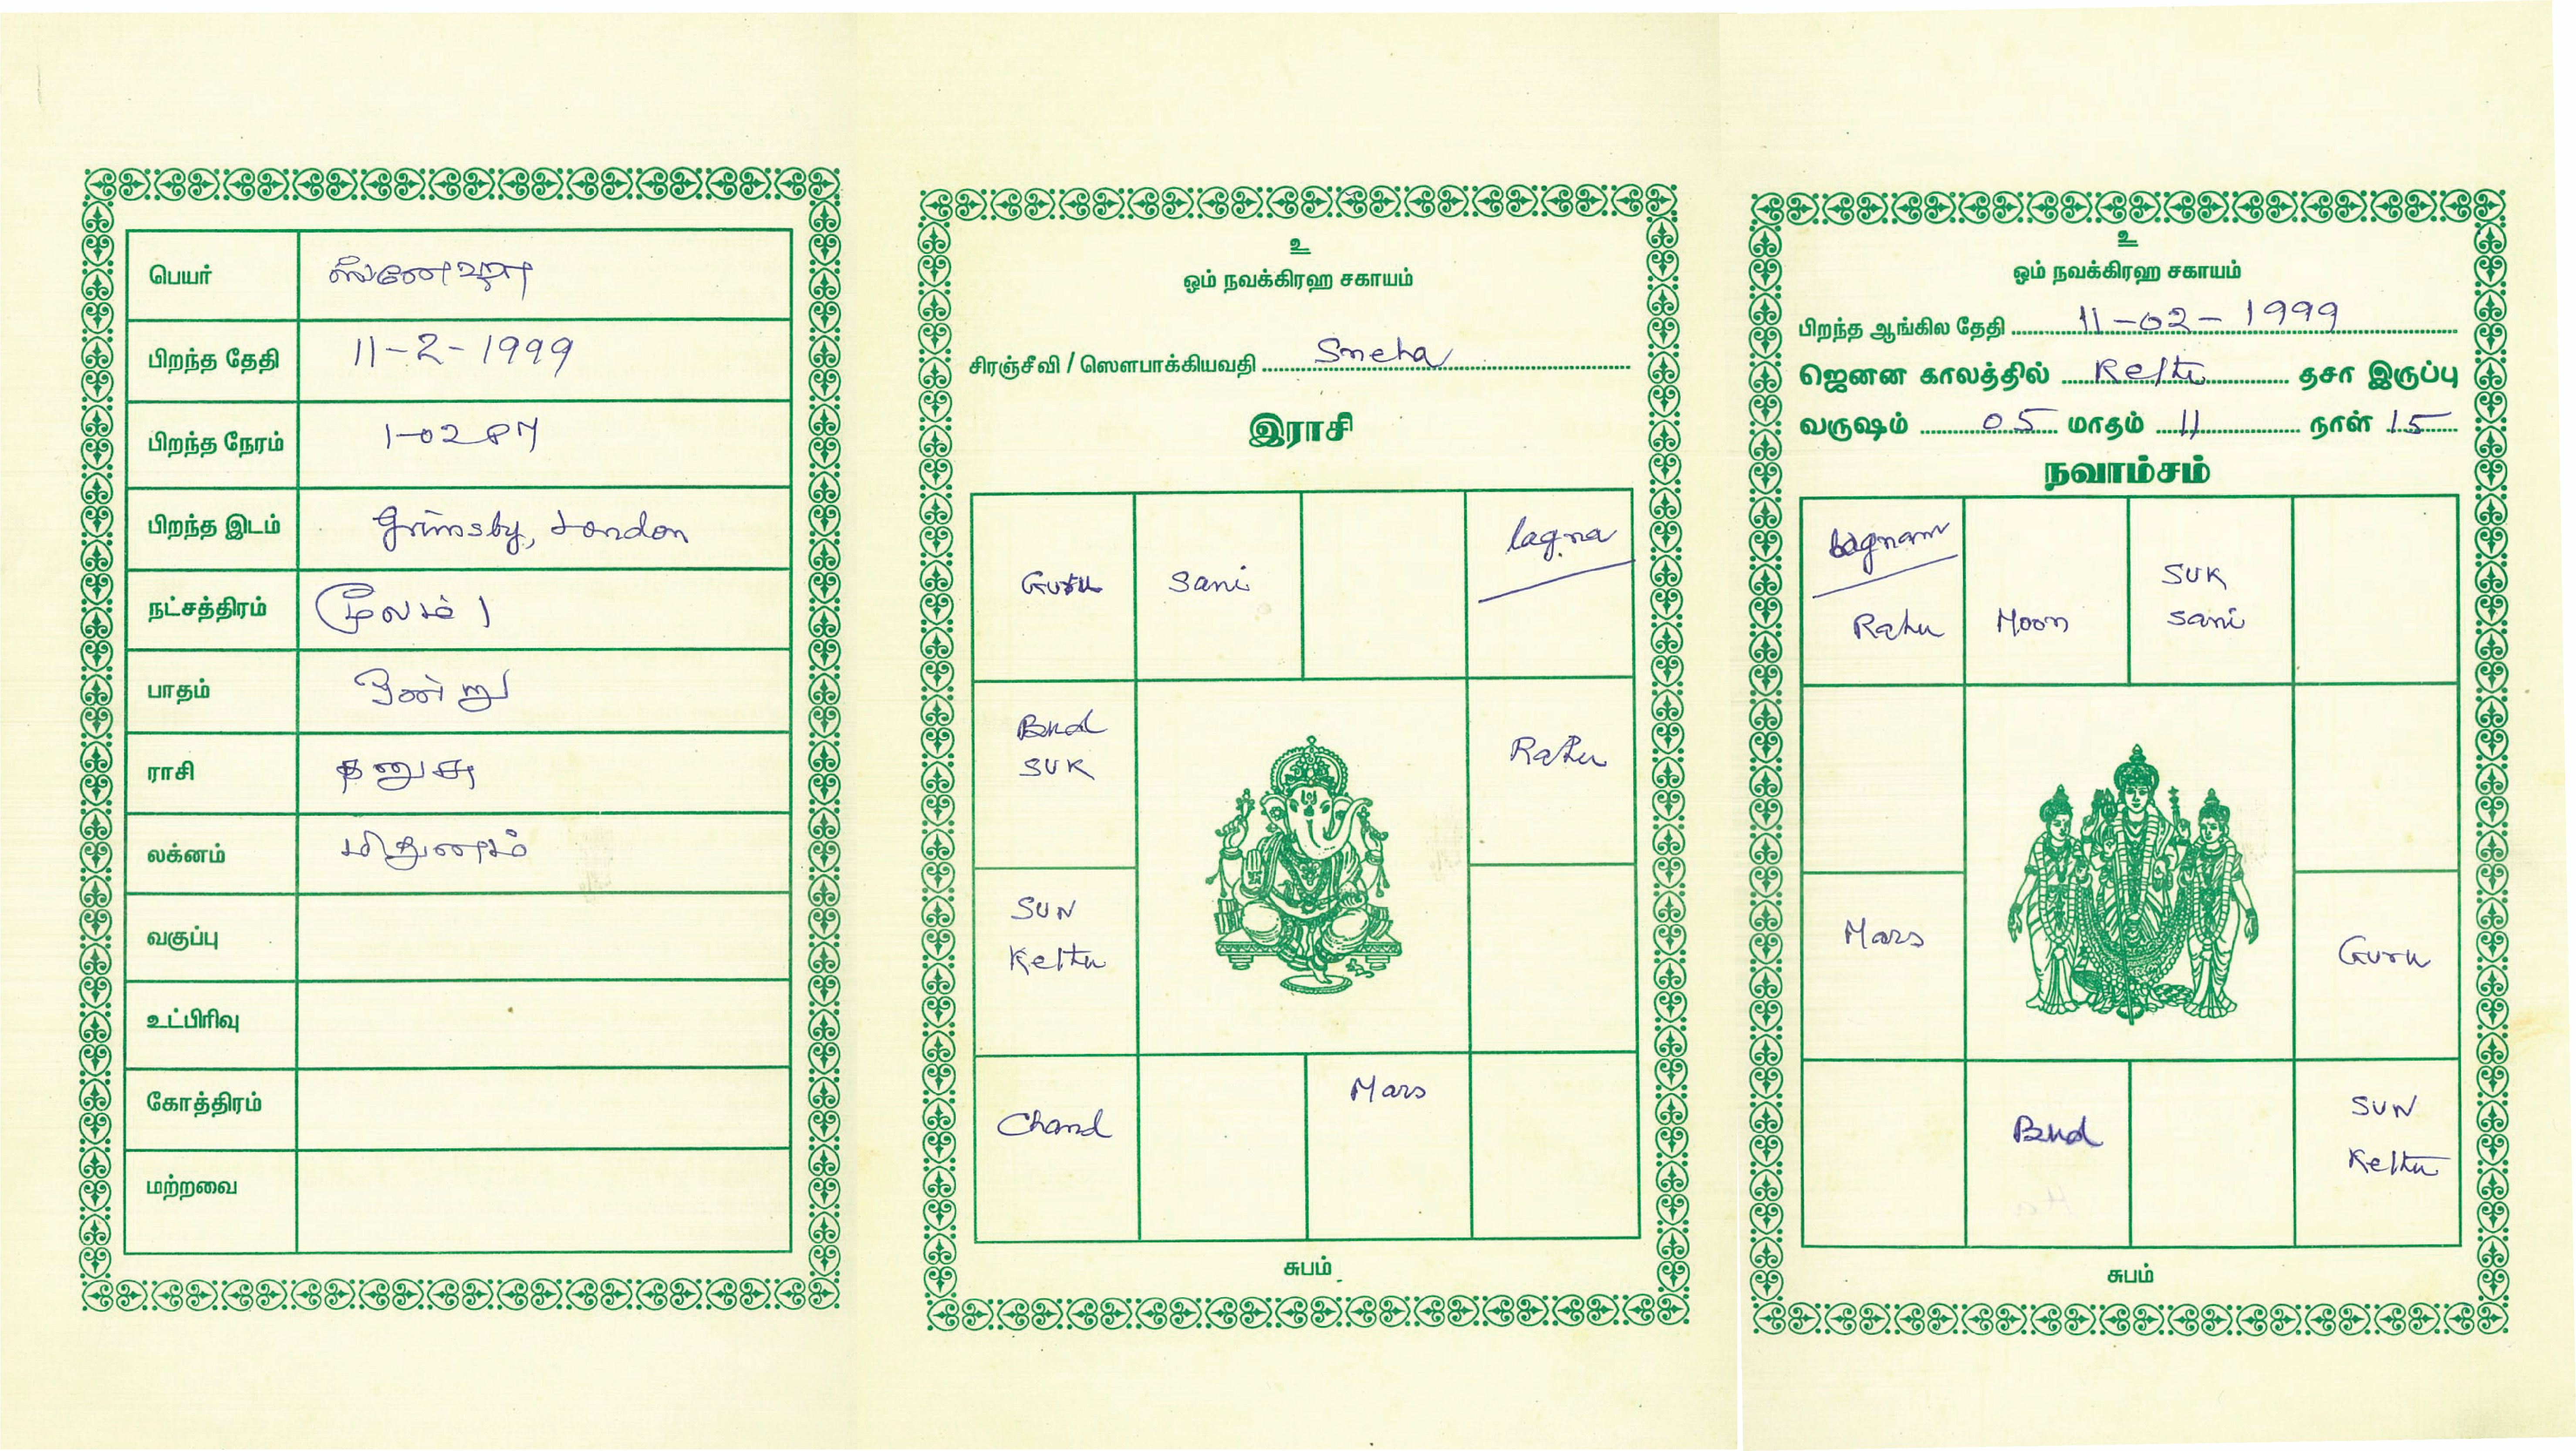 பெயர் ஸ்னேஹா
பிறந்த தேதி 11-2-1999
பிறந்த நேரம் 1-02 PM
பிறந்த இடம் Grimsby, London
நட்சத்திரம் மூலம் 1
பாதம் ஒன்று
ராசி தனுசு
லக்னம் மிதுனம்
வகுப்பு
உட்பிரிவு
கோத்திரம்
மற்றவை
உ
ஓம் நவக்கிரஹ சகாயம்
சிரஞ்சீவி / ஸௌபாக்கியவதி Sneha
இராசி
Guru Sani lagna
Bud
SUK
Rahu
SUN
Kethu
Chand Mars
சுபம்
உ
ஓம் நவக்கிரஹ சகாயம்
பிறந்த ஆங்கில தேதி 11-02-1999
ஜெனன காலத்தில் Kethu தசா இருப்பு
வருஷம் 05 மாதம் 11 நாள் 15
நவாம்சம்
lagnam
Rahu Moon
SUK
Sani
Mars Guru
Bud
SUN
Kethu
சுபம்